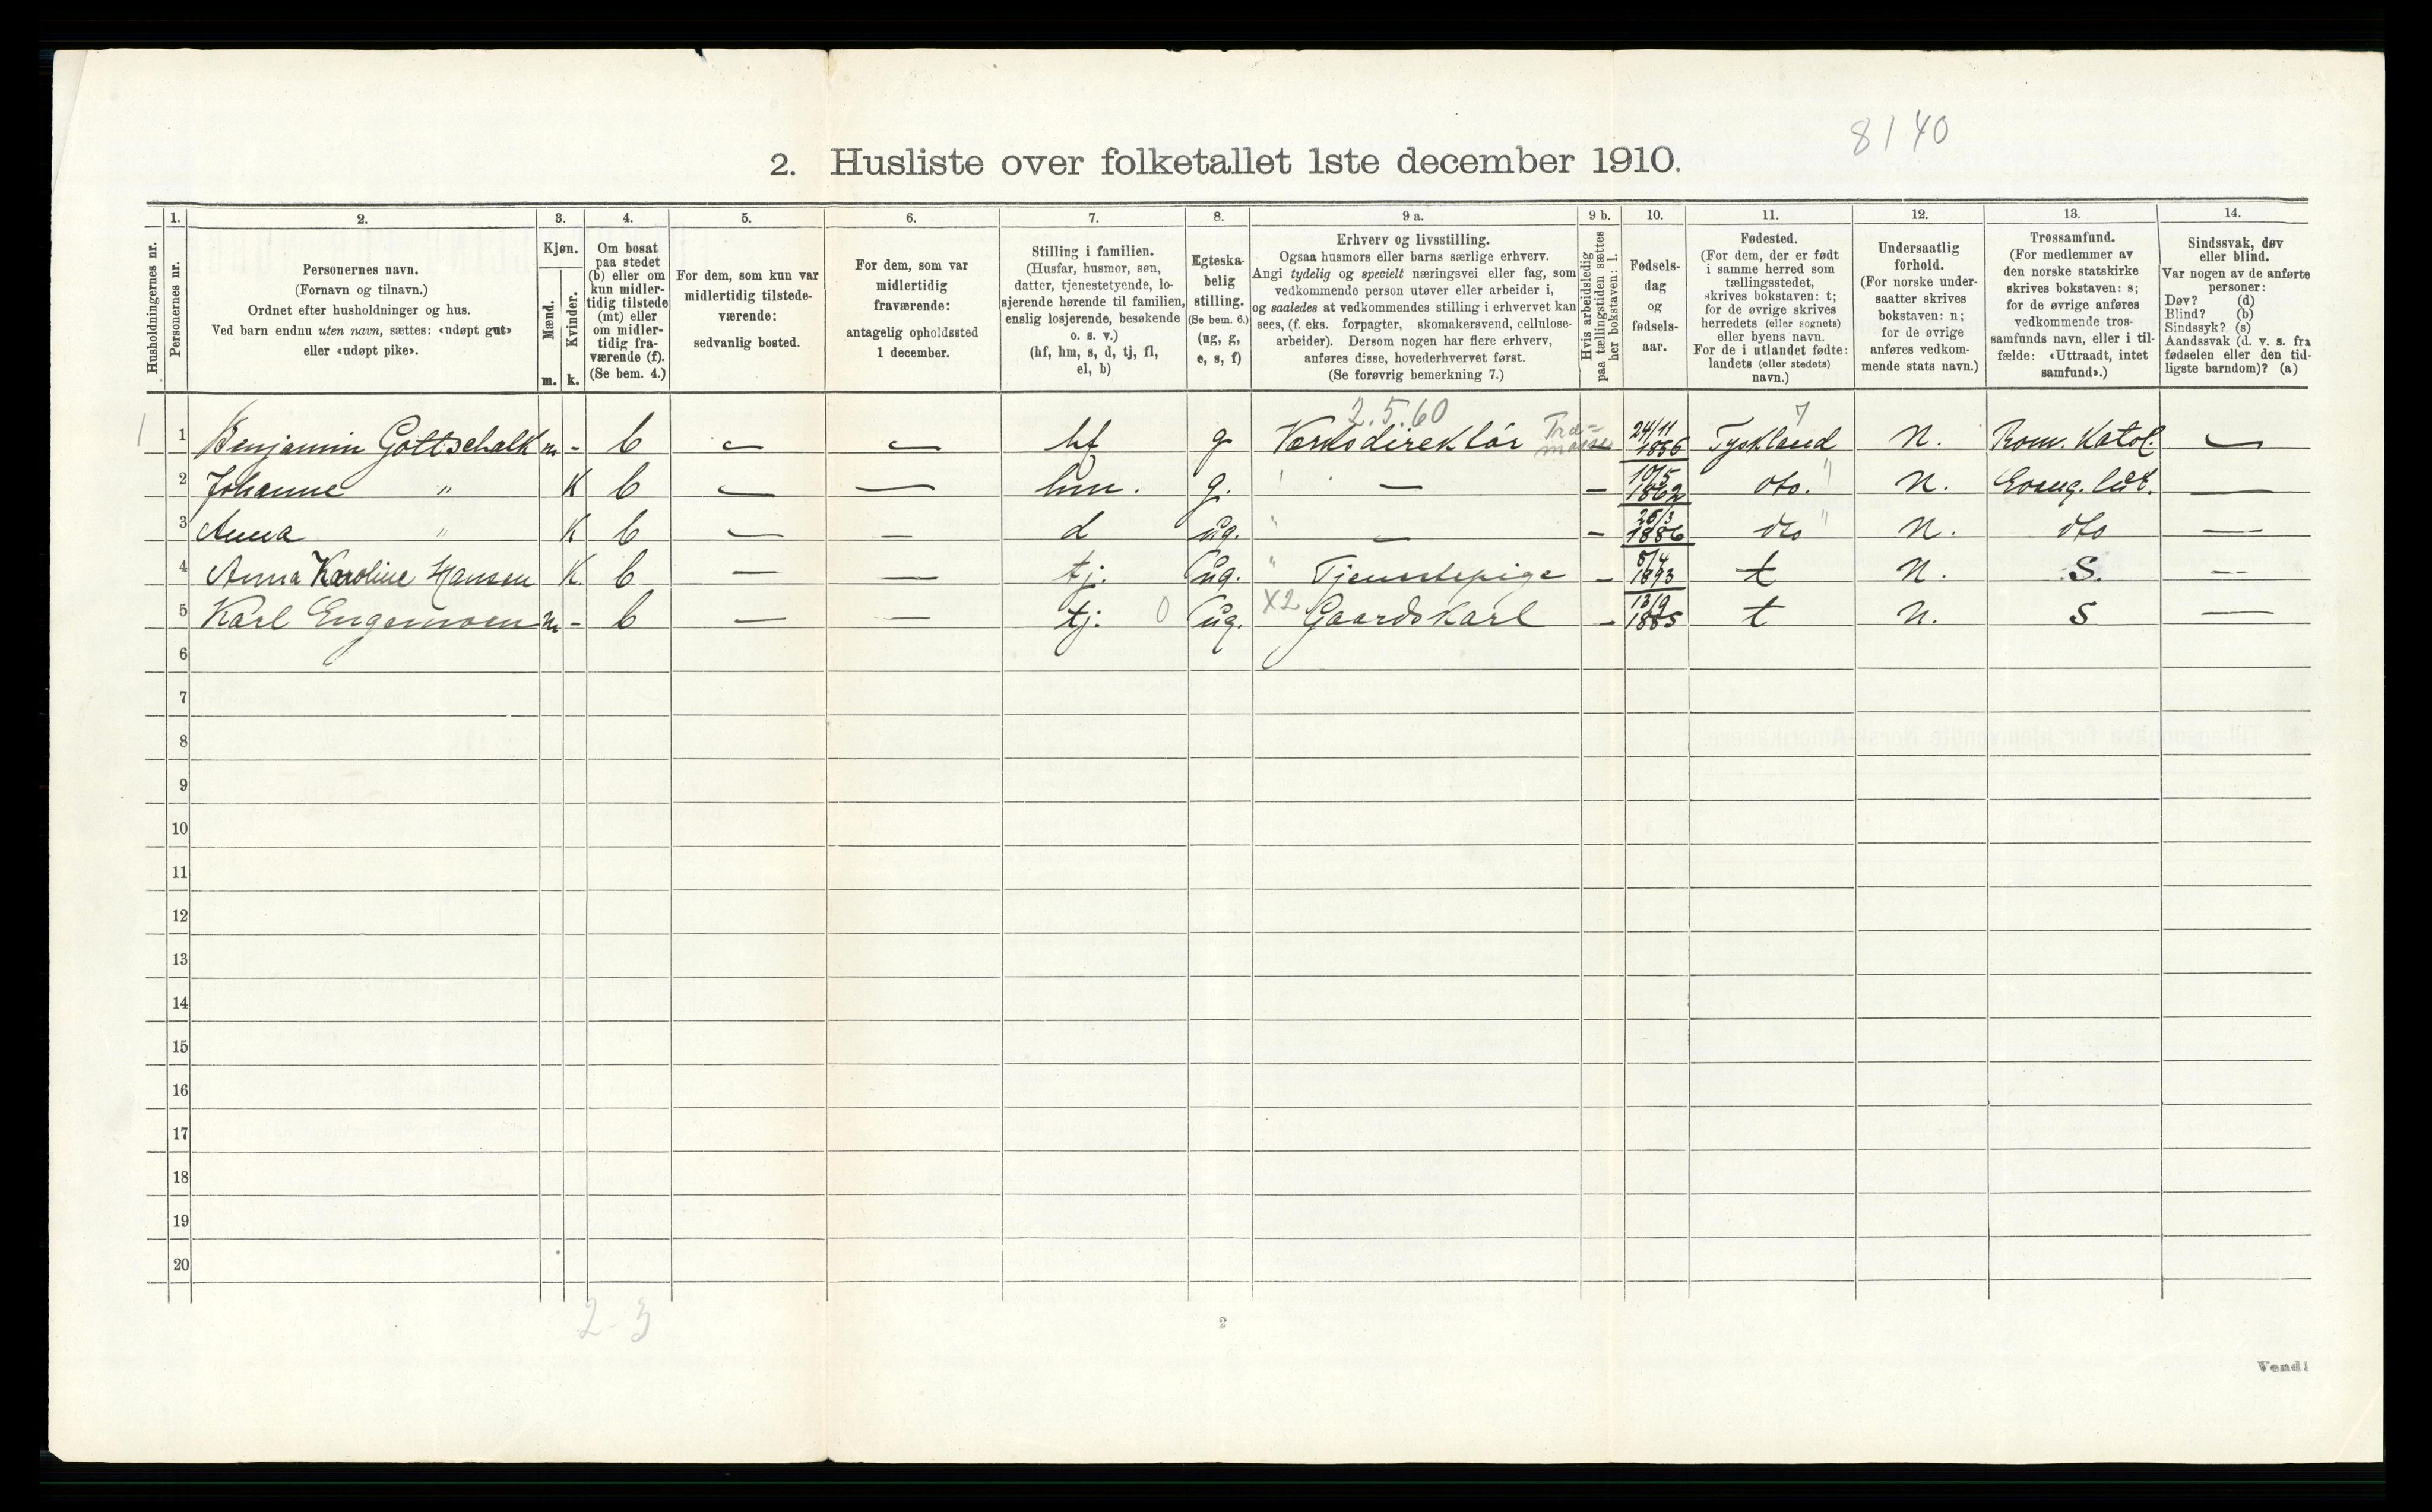 8140
2. Husliste over folketallet 1ste december 1910.
Husholdningernes nr.
1.
Personernes nr.
2.
Personernes navn.
(Fornavn og tilnavn.)
Ordnet efter husholdninger og hus.
Ved barn endnu uten navn, sættes: «udøpt gut»
eller «udøpt pike».
3.
Kjøn.
Mænd.
Kvinder.
m.
k.
4.
Om bosat
paa stedet
(b) eller om
kun midler-
tidig tilstede
(mt) eller
om midler-
tidig fra-
værende (f).
(Se bem. 4.)
5.
For dem, som kun var
midlertidig tilstede-
værende:
sedvanlig bosted.
6.
For dem, som var
midlertidig
fraværende:
antagelig opholdssted
1 december.
7.
Stilling i familien.
(Husfar, husmor, søn,
datter, tjenestetyende, lo-
sjerende hørende til familien,
enslig losjerende, besøkende
o. s. v.)
(hf, hm, s, d, tj, fl,
el, b)
8.
Egteska-
belig
stilling.
(Se bem. 6.)
(ug, g,
e, s, f)
9 a.
Erhverv og livsstilling.
Ogsaa husmors eller barns særlige erhverv.
Angi tydelig og specielt næringsvei eller fag, som
vedkommende person utøver eller arbeider i,
og saaledes at vedkommendes stilling i erhvervet kan
sees, (f. eks. forpagter, skomakersvend, cellulose-
arbeider). Dersom nogen har flere erhverv,
anføres disse, hovederhvervet først.
(Se forøvrig bemerkning 7.)
9 b.
Hvis arbeidsledig
paa tællingstiden sættes
her bokstaven: l.
10.
Fødsels-
dag
og
fødsels-
aar.
11.
Fødested.
(For dem, der er født
i samme herred som
tællingsstedet,
skrives bokstaven: t;
for de øvrige skrives
herredets (eller sognets)
eller byens navn.
For de i utlandet fødte:
landets (eller stedets)
navn.)
12.
Undersaatlig
forhold.
(For norske under-
saatter skrives
bokstaven: n;
for de øvrige
anføres vedkom-
mende stats navn.)
13.
Trossamfund.
(For medlemmer av
den norske statskirke
skrives bokstaven: s;
for de øvrige anføres
vedkommende tros-
samfunds navn, eller i til-
fælde: «Uttraadt, intet
samfund».)
14.
Sindssvak, døv
eller blind.
Var nogen av de anførte
personer:
Døv? (d)
Blind? (b)
Sindssyk? (s)
Aandssvak (d. v. s. fra
fødselen eller den tid-
ligste barndom)? (a)
2.5.60 7
1 1 Benjamin Gottschalk m - b — — hf g Værksdirektør Træ=masse 24/11 1856 Tyskland n. Rom. Katol. —
2 Johanne " K b — — hm. g. — - 10/5 1862 dto. " n. Evang. lut. —
3 Anna " K b — — d ug. " — - 26/3 1886 dto " n. dto —
4 Anna Karoline Hansen K. b — — tj. ug. " Tjenestepige - 8/4 1893 t n. S. —
5 Karl Engemoen m - b — — tj. 0 ug. X2 Gaardskarl - 13/9 1885 t n. S —
6
7
8
9
10
11
12
13
14
15
16
17
18
19
20
2-3
2
Vend!